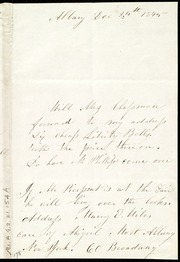 Albany Dec 15th 1845
Will Mrs Chapman
forward to my address
Six cheap Liberty Bells
with the price thereon.
To have Mr Phillips come over
If Mr Pierpont is at the Fair
he will bring over the
Address Nancy E.
care of Abigail Mott Albany
New York. 61 Broadway